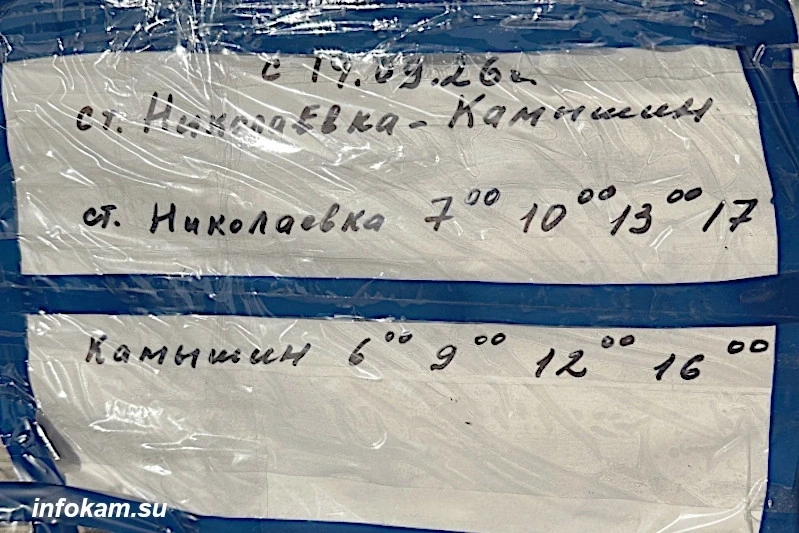 с 19.09.26г
ст. НиколаЕвка - Камышин
ст. Николаевка 7⁰⁰ 10⁰⁰ 13⁰⁰ 17
Камышин 6⁰⁰ 9⁰⁰ 12⁰⁰ 16⁰⁰
infokam.su